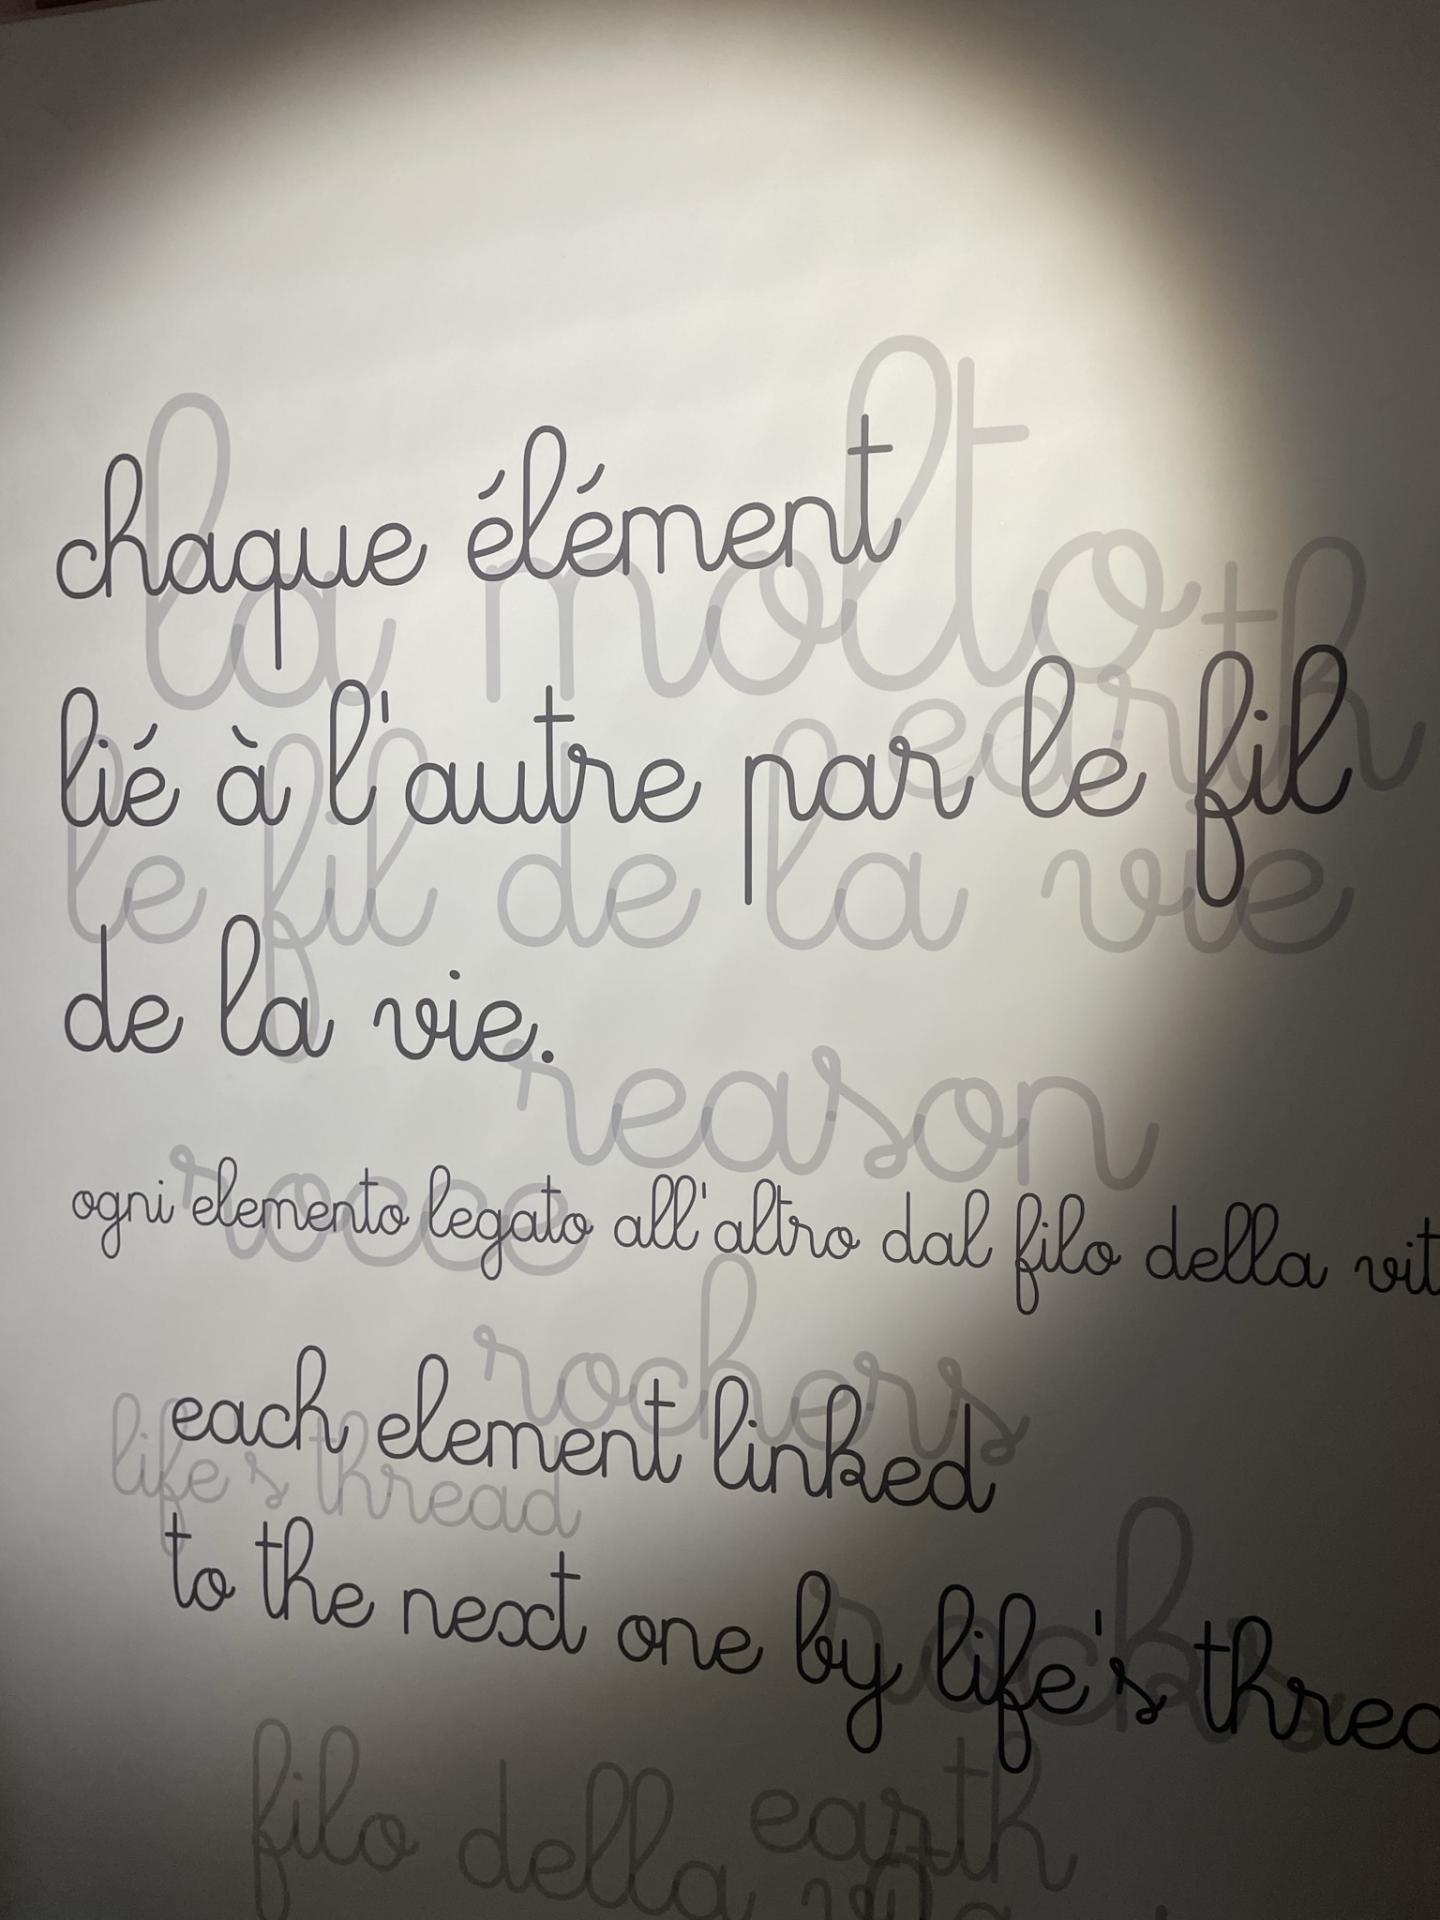 la molto
chaque élément
earth
lié à l'autre par le fil
le fil de la vie
de la vie.
reason
rocce
ogni elemento legato all'altro dal filo della vit
rochers
each element linked
life's thread
to the next one by life's threa
rocks
earth
filo della